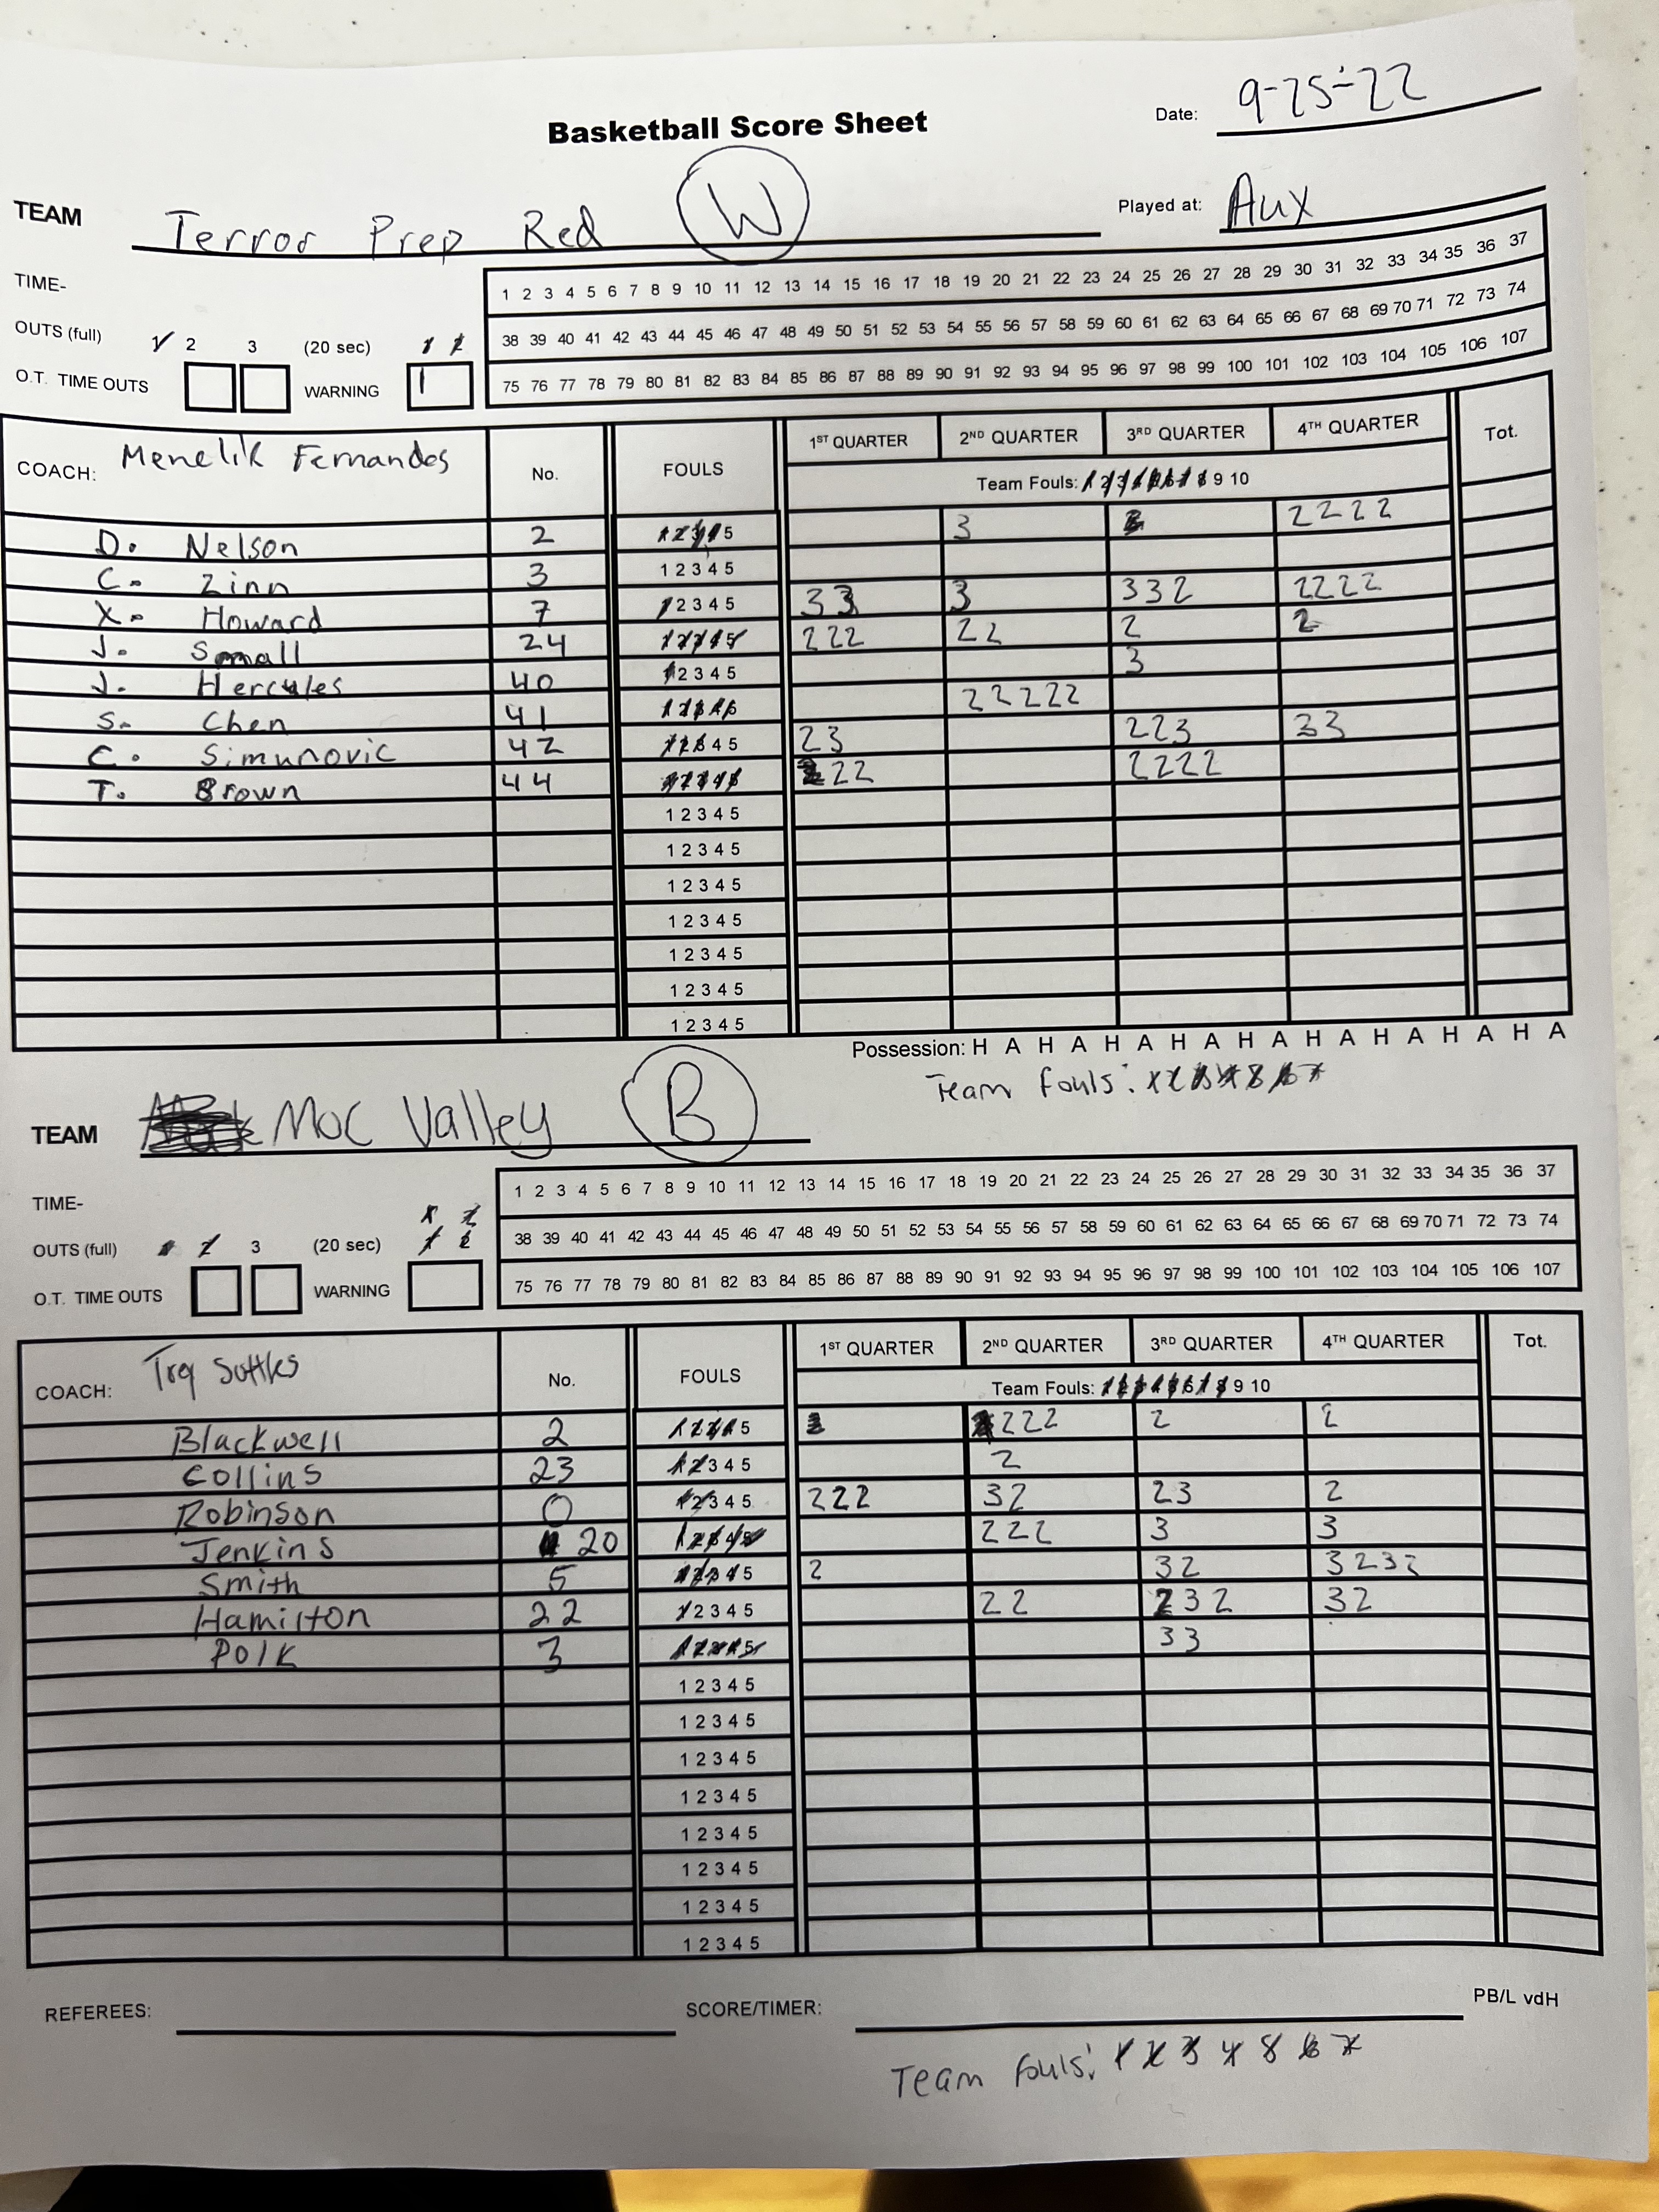 Basketball Score Sheet
Date: 9-25-22
TEAM Terror Prep Red W
Played at: Aux
TIME-
OUTS (full) 1 2 3 (20 sec) 1 2
O.T. TIME OUTS WARNING 1
1 2 3 4 5 6 7 8 9 10 11 12 13 14 15 16 17 18 19 20 21 22 23 24 25 26 27 28 29 30 31 32 33 34 35 36 37
38 39 40 41 42 43 44 45 46 47 48 49 50 51 52 53 54 55 56 57 58 59 60 61 62 63 64 65 66 67 68 69 70 71 72 73 74
75 76 77 78 79 80 81 82 83 84 85 86 87 88 89 90 91 92 93 94 95 96 97 98 99 100 101 102 103 104 105 106 107
COACH: Menelik Fernandes No. FOULS 1ST QUARTER 2ND QUARTER 3RD QUARTER 4TH QUARTER Tot.
Team Fouls: 1 2 3 4 5 6 7 8 9 10
D. Nelson 2 1 2 3 4 5 3 2222
C. Zinn 3 1 2 3 4 5
X. Howard 7 1 2 3 4 5 33 3 332 2222
J. Small 24 1 2 3 4 5 222 22 2 2
J. Hercules 40 1 2 3 4 5 3
S. Chen 41 1 2 3 4 5 22222
C. Simunovic 42 1 2 3 4 5 23 223 33
T. Brown 44 1 2 3 4 5 22 2222
1 2 3 4 5
1 2 3 4 5
1 2 3 4 5
1 2 3 4 5
1 2 3 4 5
1 2 3 4 5
1 2 3 4 5
Possession: H A H A H A H A H A H A H A H A H A
Team fouls: 1 2 3 4 5 6 7
TEAM Moc Valley B
TIME-
1 2
OUTS (full) 1 2 3 (20 sec) 1 2
O.T. TIME OUTS WARNING
1 2 3 4 5 6 7 8 9 10 11 12 13 14 15 16 17 18 19 20 21 22 23 24 25 26 27 28 29 30 31 32 33 34 35 36 37
38 39 40 41 42 43 44 45 46 47 48 49 50 51 52 53 54 55 56 57 58 59 60 61 62 63 64 65 66 67 68 69 70 71 72 73 74
75 76 77 78 79 80 81 82 83 84 85 86 87 88 89 90 91 92 93 94 95 96 97 98 99 100 101 102 103 104 105 106 107
COACH: No. FOULS 1ST QUARTER 2ND QUARTER 3RD QUARTER 4TH QUARTER Tot.
Team Fouls: 1 2 3 4 5 6 7 8 9 10
Blackwell 2 1 2 3 4 5 222 2 2
Collins 23 1 2 3 4 5 2
Robinson 0 1 2 3 4 5 222 32 23 2
Jenkins 20 1 2 3 4 5 222 3 3
Smith 5 1 2 3 4 5 2 32 3232
Hamilton 22 1 2 3 4 5 22 232 32
Polk 3 1 2 3 4 5 33
1 2 3 4 5
1 2 3 4 5
1 2 3 4 5
1 2 3 4 5
1 2 3 4 5
1 2 3 4 5
1 2 3 4 5
1 2 3 4 5
REFEREES: SCORE/TIMER: PB/L vdH
Team fouls: 1 2 3 4 5 6 7